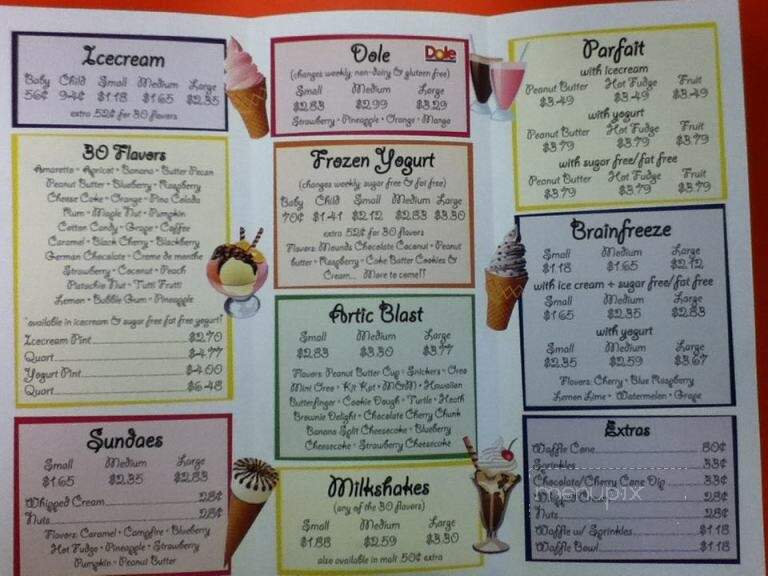 Icecream
Baby Child Small Medium Large
56¢ 94¢ $1.18 $1.65 $2.35
extra 52¢ for 30 flavors
30 Flavors
Amaretto • Apricot • Banana • Butter Pecan
Peanut Butter • Blueberry • Raspberry
Cheese Cake • Orange • Pina Colada
Rum • Maple Nut • Pumpkin
Cotton Candy • Grape • Coffee
Caramel • Black Cherry • Blackberry
German Chocolate • Creme de menthe
Strawberry • Coconut • Peach
Pistachio Nut • Tutti Frutti
Lemon • Bubble Gum • Pineapple
*available in icecream & sugar free fat free yogurt!
Icecream Pint $2.70
Quart $4.77
Yogurt Pint $4.00
Quart $6.48
Sundaes
Small Medium Large
$1.65 $2.35 $2.83
Whipped Cream 28¢
Nuts 28¢
Flavors: Caramel • Campfire • Blueberry
Hot Fudge • Pineapple • Strawberry
Pumpkin • Peanut Butter
Dole Dole
(changes weekly, non-dairy & gluten free)
Small Medium Large
$2.83 $2.99 $3.29
Strawberry • Pineapple • Orange • Mango
Frozen Yogurt
(changes weekly, sugar free & fat free)
Baby Child Small Medium Large
70¢ $1.41 $2.12 $2.83 $3.30
extra 52¢ for 30 flavors
Flavors: Mounds Chocolate Coconut • Peanut
butter • Raspberry • Cake Batter Cookies &
Cream... More to come!!
Artic Blast
Small Medium Large
$2.83 $3.30 $3.77
Flavors: Peanut Butter Cup • Snickers • Oreo
Mint Oreo • Kit Kat • M&M • Hawaiian
Butterfinger • Cookie Dough • Turtle • Heath
Brownie Delight • Chocolate Cherry Chunk
Banana Split Cheesecake • Blueberry
Cheesecake • Strawberry Cheesecake
Milkshakes
(any of the 30 flavors)
Small Medium Large
$1.88 $2.59 $3.30
also available in malt 50¢ extra
Parfait
with icecream
Peanut Butter Hot Fudge Fruit
$3.49 $3.49 $3.49
with yogurt
Peanut Butter Hot Fudge Fruit
$3.79 $3.79 $3.79
with sugar free/fat free
Peanut Butter Hot Fudge Fruit
$3.79 $3.79 $3.79
Brainfreeze
Small Medium Large
$1.18 $1.65 $2.12
with ice cream + sugar free/fat free
Small Medium Large
$1.65 $2.35 $2.83
with yogurt
Small Medium Large
$2.35 $2.59 $3.67
Flavors: Cherry • Blue Raspberry
Lemon Lime • Watermelon • Grape
Extras
Waffle Cone 80¢
Sprinkles 33¢
Chocolate/Cherry Cone Dip 33¢
Whipped Cream 28¢
Nuts 28¢
Waffle w/ Sprinkles $1.18
Waffle Bowl $1.18
menupix